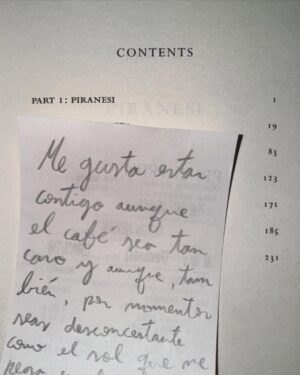 CONTENTS
PART 1: PIRANESI 1
19
83
123
171
185
231
Me gusta estar
contigo aunque
el café sea tan
caro y aunque, tam
bién, por momentos
seas desconcertante
como el sol que me